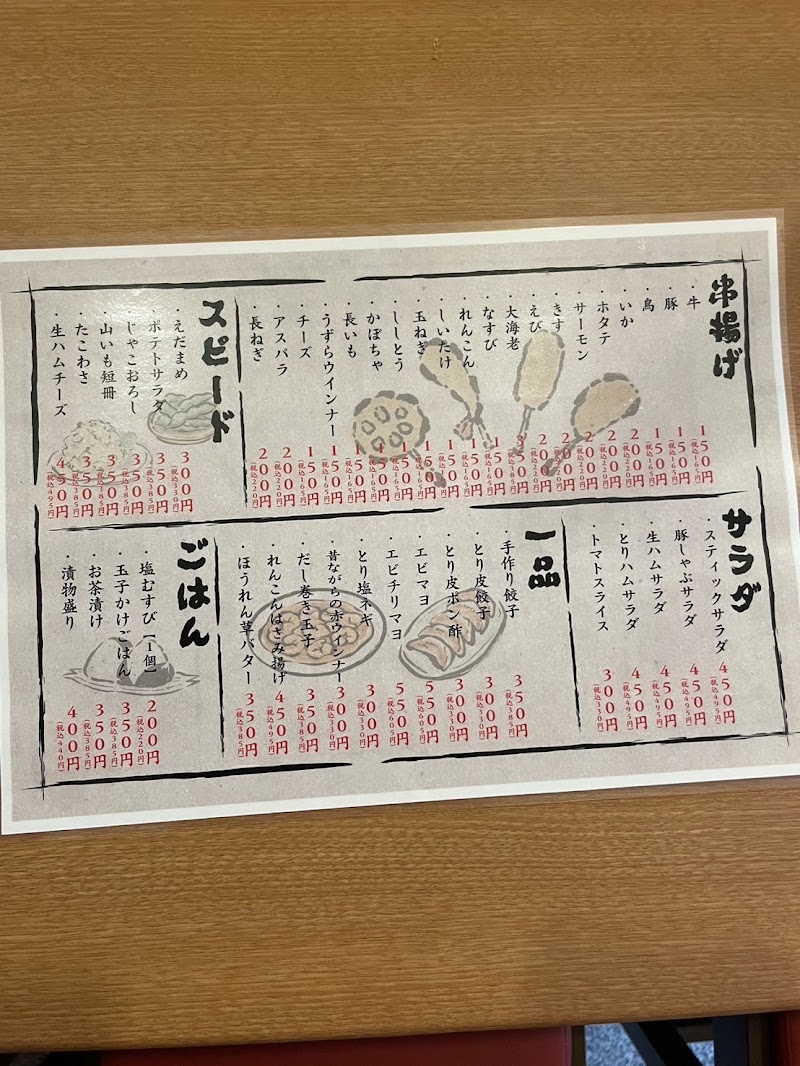 串揚げ
・牛 150円(税込165円)
・豚 150円(税込165円)
・鳥 150円(税込165円)
・いか 200円(税込220円)
・ホタテ 200円(税込220円)
・サーモン 200円(税込220円)
・きす 200円(税込220円)
・えび 200円(税込220円)
・大海老 350円(税込385円)
・なすび 150円(税込165円)
・れんこん 150円(税込165円)
・しいたけ 150円(税込165円)
・玉ねぎ 150円(税込165円)
・ししとう 150円(税込165円)
・かぼちゃ 150円(税込165円)
・長いも 150円(税込165円)
・うずらウインナー 150円(税込165円)
・チーズ 150円(税込165円)
・アスパラ 200円(税込220円)
・長ねぎ 200円(税込220円)
スピード
・えだまめ 300円(税込330円)
・ポテトサラダ 350円(税込385円)
・じゃこおろし 350円(税込385円)
・山いも短冊 350円(税込385円)
・たこわさ 350円(税込385円)
・生ハムチーズ 450円(税込495円)
サラダ
・スティックサラダ 450円(税込495円)
・豚しゃぶサラダ 450円(税込495円)
・生ハムサラダ 450円(税込495円)
・とりハムサラダ 450円(税込495円)
・トマトスライス 300円(税込330円)
一品
・手作り餃子 350円(税込385円)
・とり皮餃子 300円(税込330円)
・とり皮ポン酢 300円(税込330円)
・エビマヨ 550円(税込605円)
・エビチリマヨ 550円(税込605円)
・とり塩ネギ 300円(税込330円)
・昔ながらの赤ウインナー 300円(税込330円)
・だし巻き玉子 350円(税込385円)
・れんこんはさみ揚げ 450円(税込495円)
・ほうれん草バター 350円(税込385円)
ごはん
・塩むすび【1個】 200円(税込220円)
・玉子かけごはん 350円(税込385円)
・お茶漬け 350円(税込385円)
・漬物盛り 400円(税込440円)